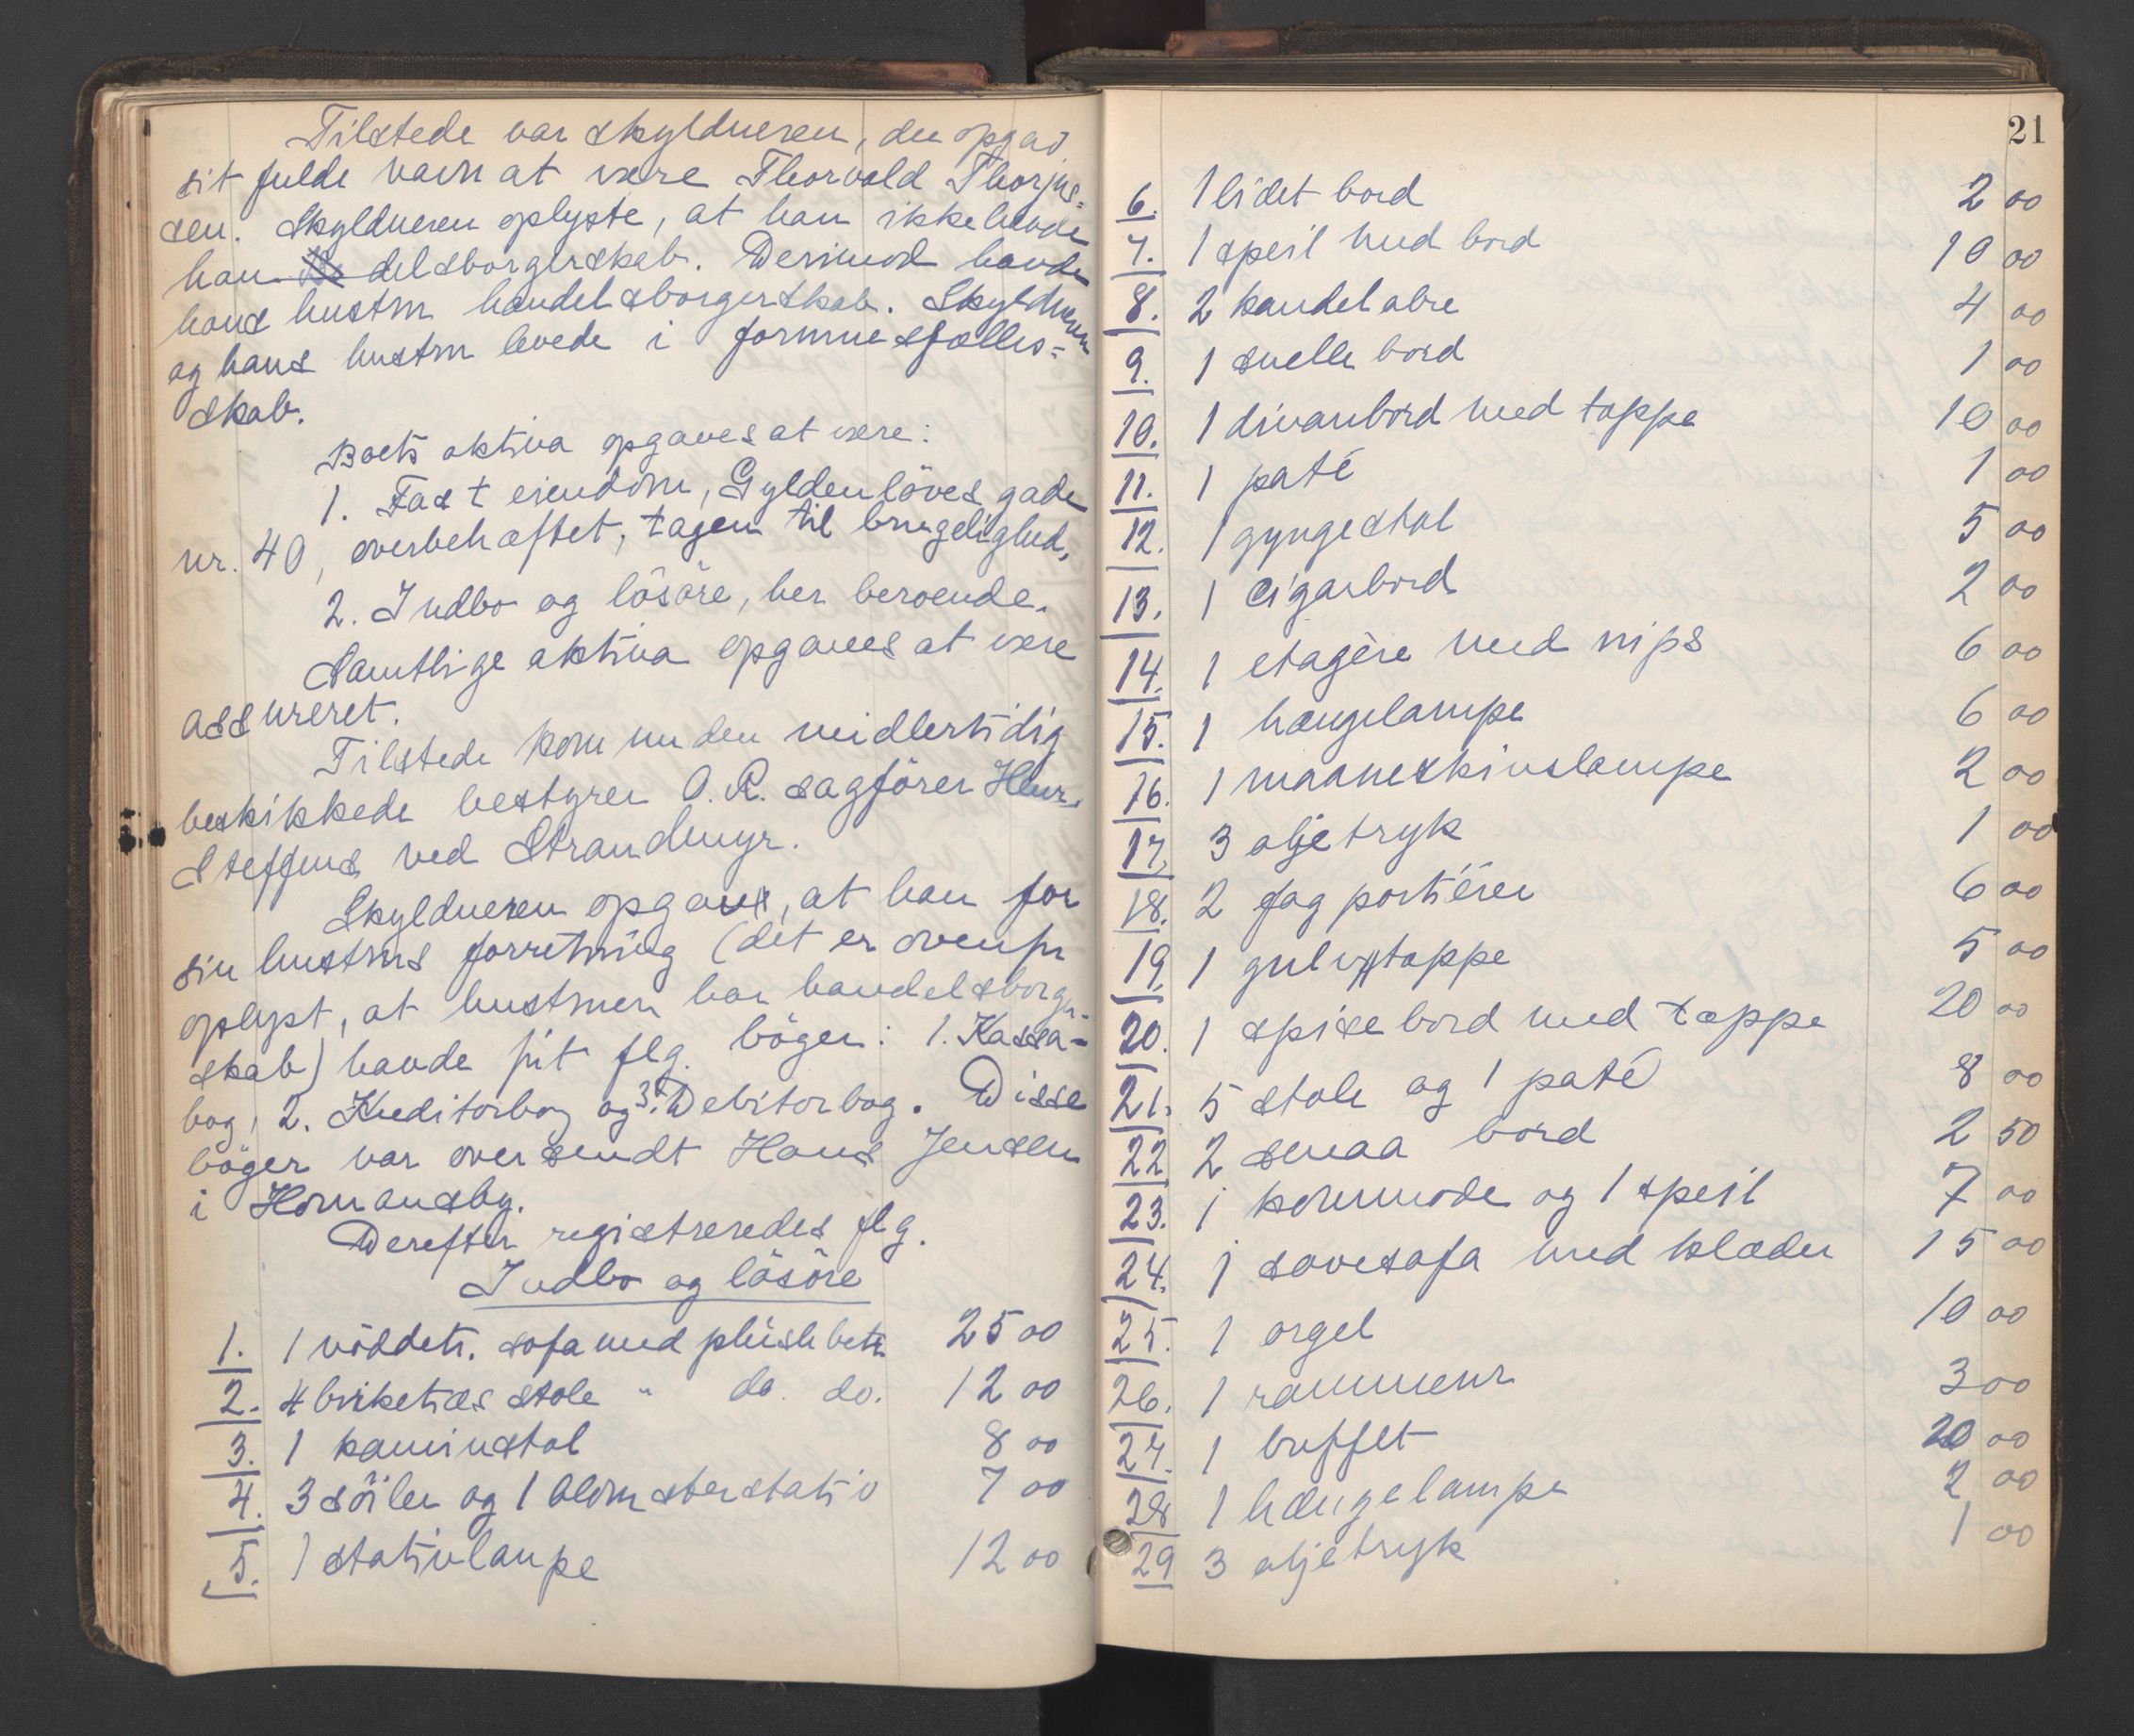 Tilstede var skyldneren, der opgav
sit fulde navn at være Thorvald Thorjus-
sen. Skyldneren oplyste, at han ikke havde
han delsborgerskab. Derimod havde
hans hustru handelsborgerskab. Skyldneren
og hans hustru levede i formuesfælles-
skab.
Boets aktiva opgaves at være:
1. Fast eiendom, Gyldenlöves gade
nr. 40, overbehæftet, tagen til brugelighed,
2. Indbo og lösöre, her beroende.
Samtlige aktiva opgaves at være
assureret.
Tilstede kom nu den midlertidig
beskikkede bestyrer O.R. sagförer Henr.
Steffens ved Strandmyr.
Skyldneren opgav, at han for
sin hustrus forretning (det er ovenfor
oplyst, at hustruen har handelsborger-
skab) havde fört flg. böger: 1. Kassa-
bog, 2. Kreditorbog og 3. Debitorbog. Disse
böger var oversendt Hans Jensen
i Homansby.
Derefter registreredes flg.
Indbo og lösöre
1. 1 nöddetr. sofa med plüsh betr. 25 00
2. 4 birketræs stole " do. do. 12 00
3. 1 kaminstol 8 00
4. 3 söiler og 1 blomsterstativ 7 00
5. 1 stativlampe 12 00
21
6. 1 lidet bord 2 00
7. 1 speil med bord 10 00
8. 2 kandelabre 4 00
9. 1 snelle bord 1 00
10. 1 divanbord med tæppe 10 00
11. 1 paté 1 00
12. 1 gyngestol 5 00
13. 1 cigarbord 2 00
14. 1 etagère med nips 6 00
15. 1 hængelampe 6 00
16. 1 maaneskinslampe 2 00
17. 3 oljetryk 1 00
18. 2 fag portièrer 6 00
19. 1 gulvtæppe 5 00
20. 1 spisebord med tæppe 20 00
21. 5 stole og 1 paté 8 00
22 2 smaa bord 2 50
23. 1 kommode og 1 speil 7 00
24. 1 sovesofa med klæder 15 00
25. 1 orgel 10 00
26. 1 rammeur 3 00
27. 1 buffet 20 00
28 1 hængelampe 2 00
29 3 oljetryk 1 00